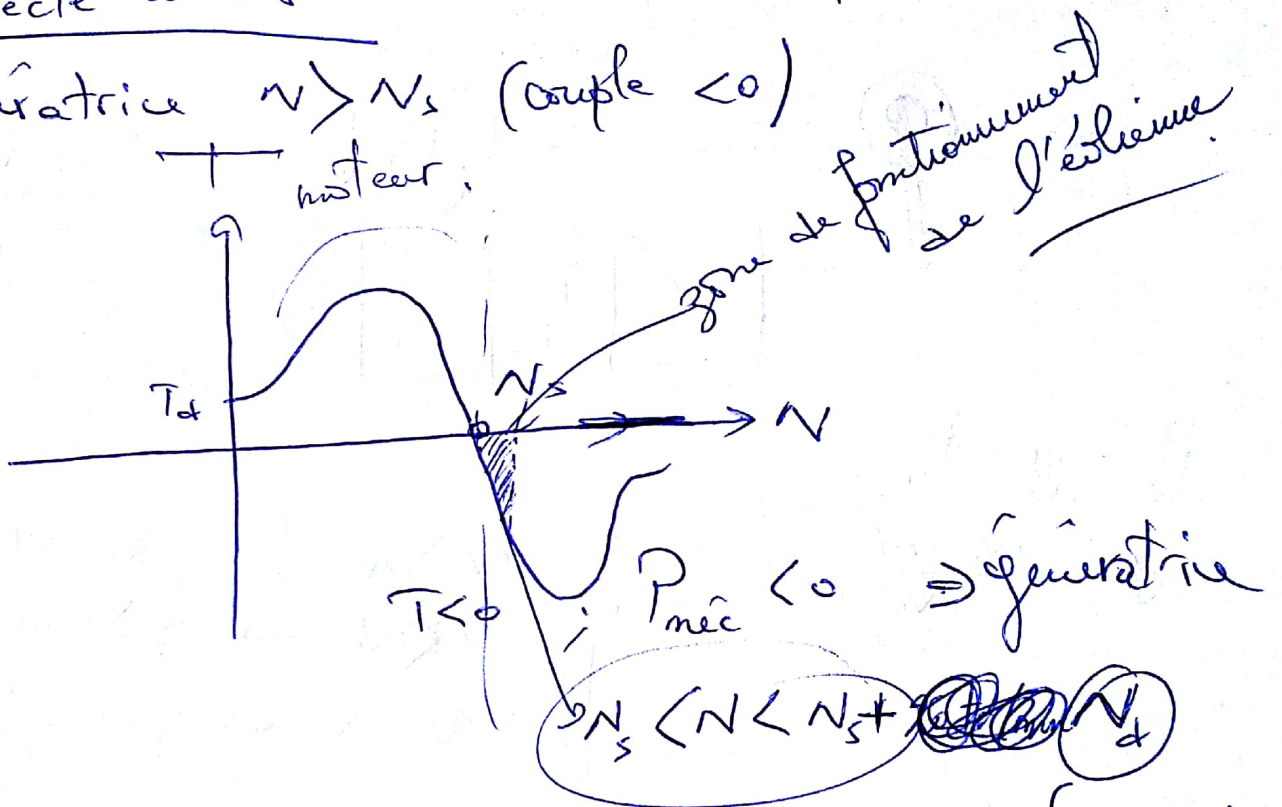 ératrice N > Ns (couple <0)
moteur.
zone de fonctionnement
de l'éolienne.
Td
Ns
N
T<0 ; Pméc <0 ⇒ génératrice
Ns < N < Ns + Nd